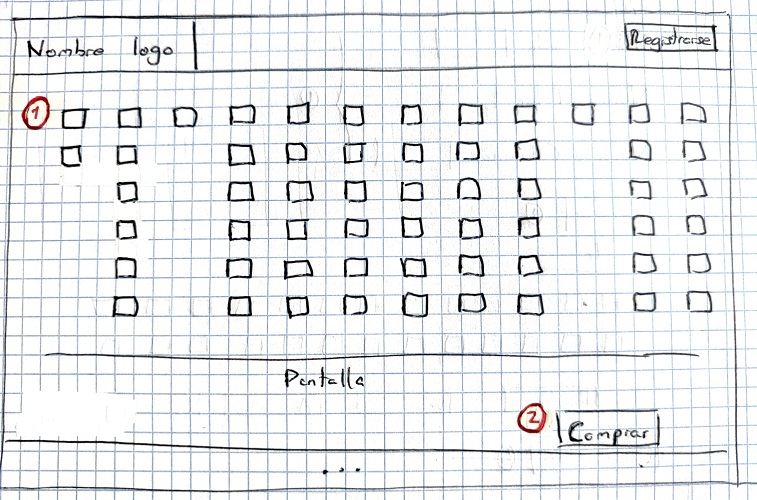 Nombre logo
Registrarse
1
Pantalla
2
Comprar
...